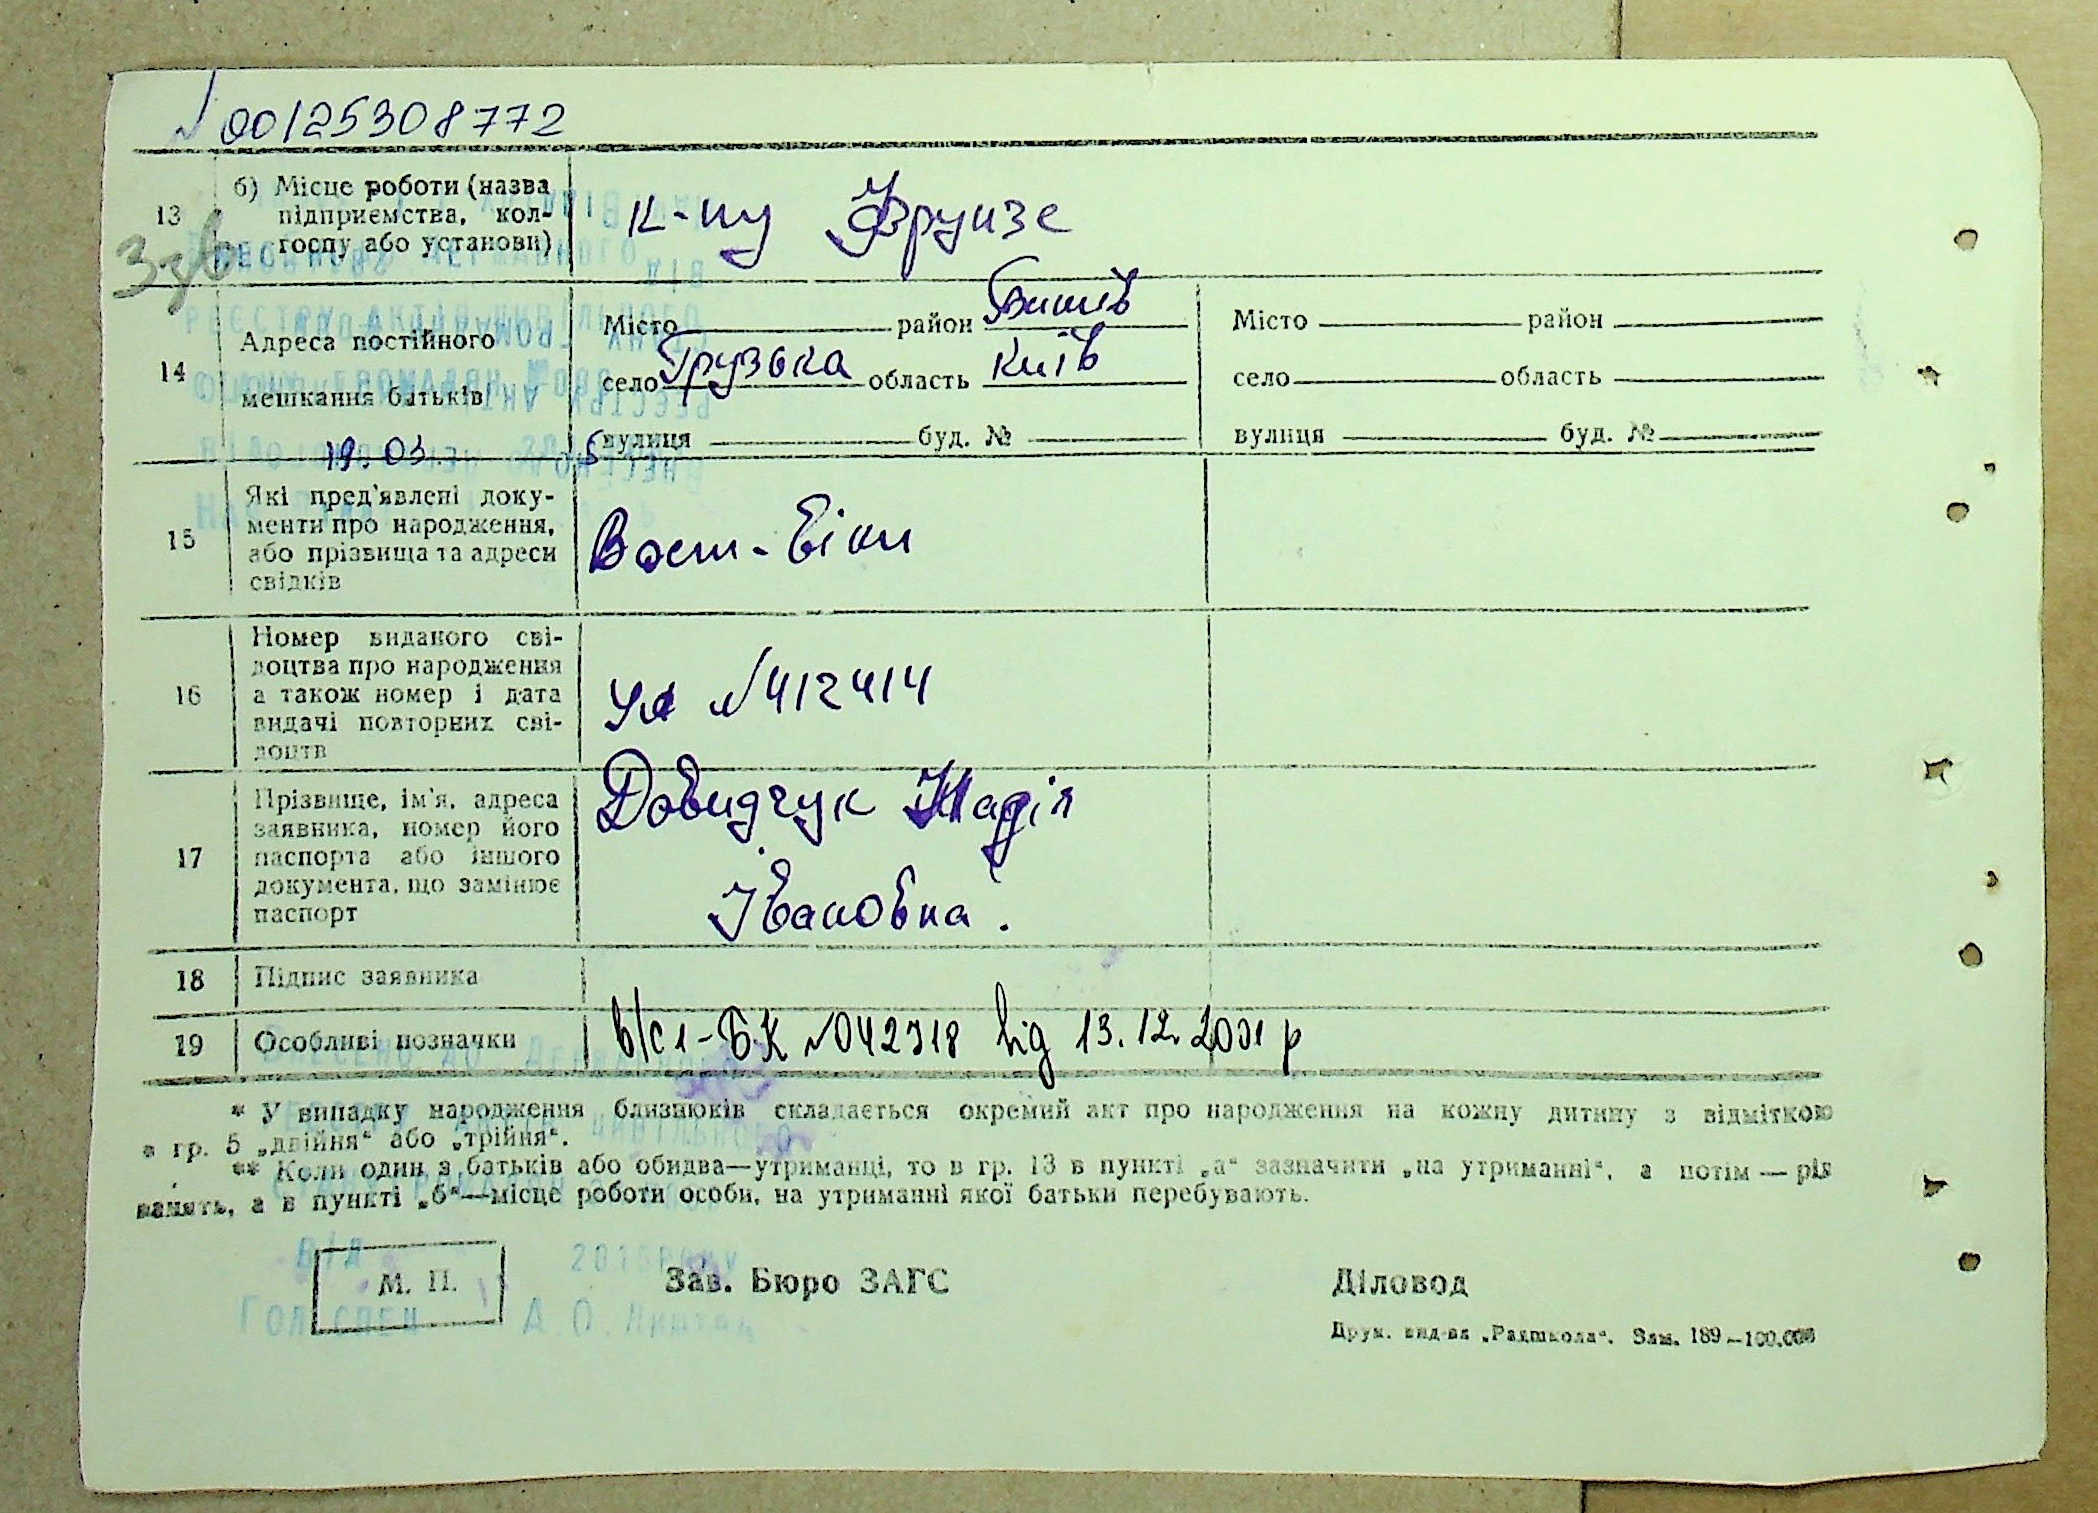 № 00125308772
13 б) Місце роботи (назва
підприємства, кол-
госпу або установи)
к-пу Фрунзе
14 Адреса постійного
мешкання батьків
Місто район
село Грузька область Київ
вулиця буд. №
Місто район
село область
вулиця буд. №
19.03.
15 Які пред'явлені доку-
менти про народження,
або прізвища та адреси
свідків
16 Номер виданого сві-
доцтва про народження
а також номер і дата
видачі повторних сві-
доцтв
№ 412414
17 Прізвище, ім'я, адреса
заявника, номер його
паспорта або іншого
документа, що замінює
паспорт
Довидчук Надія
Івановна.
18 Підпис заявника
19 Особливі позначки
в/с 1-БК №042318 від 13.12.2001 р
* У випадку народження близнюків складається окремий акт про народження на кожну дитину з відміткою
в гр. 5 „двійня“ або „трійня“.
** Коли один з батьків або обидва—утриманці, то в гр. 13 в пункті „а“ зазначити „на утриманні“, а потім —
а в пункті „б“—місце роботи особи, на утриманні якої батьки перебувають.
М. П.
Зав. Бюро ЗАГС
Діловод
Друк. вид-ва „Радшкола“. Зам. 189—100.000